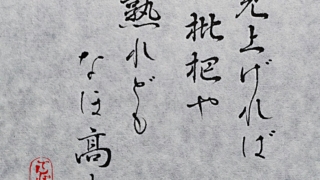 見上げれば
枇杷や
熟れども
なほ高